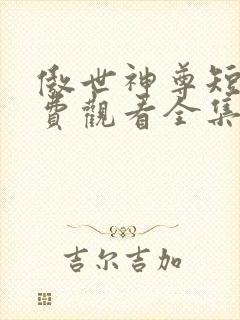 傲世神尊短
費觀看全集
吉尔吉加